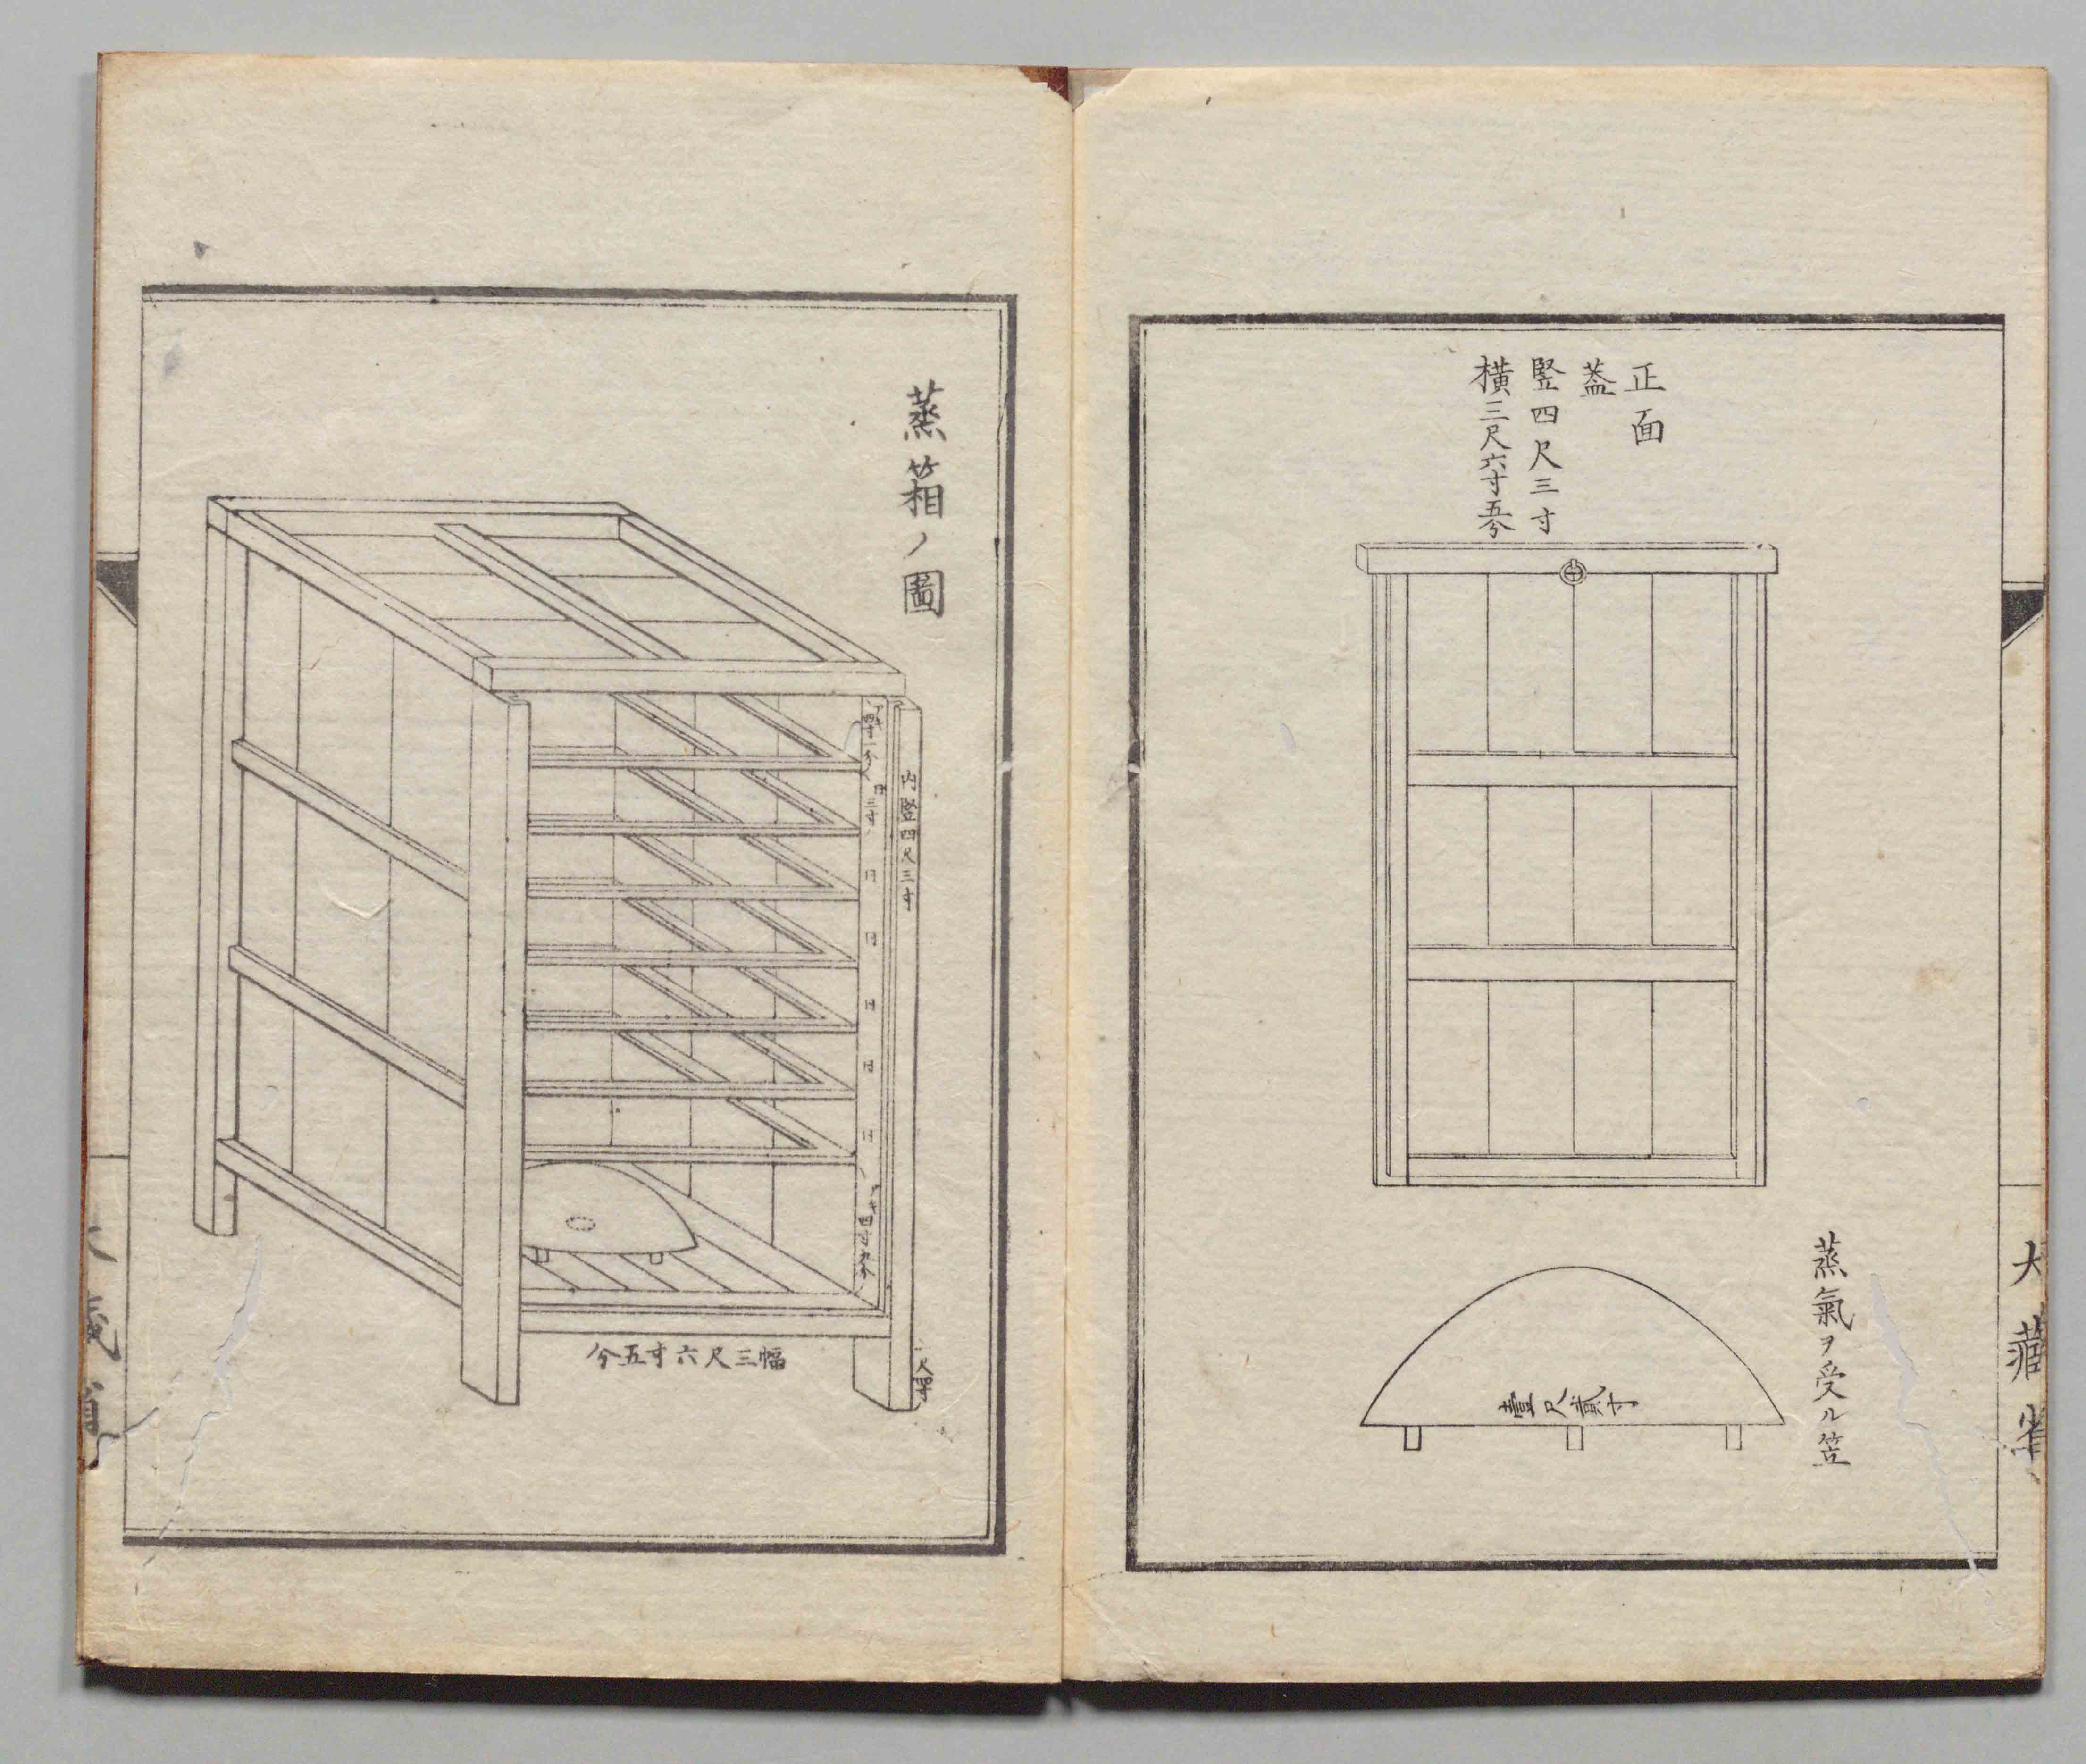 正面
蓋
竪四尺三寸
橫三尺六寸五分
蒸氣ヲ受ル笠
壹尺貳寸
大藏省
蒸箱ノ圖
内竪四尺三寸
四寸一分
同三寸
同
同
同
同
同
四寸九分
幅三尺六寸五分